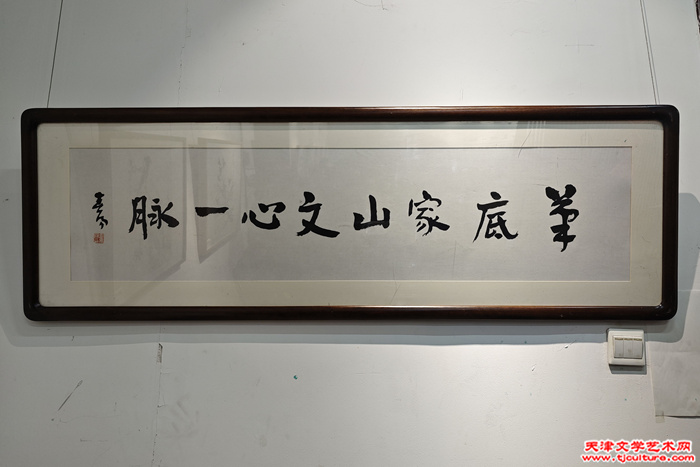 笔底家山文心一脉
天津文学艺术网
www.tjculture.com